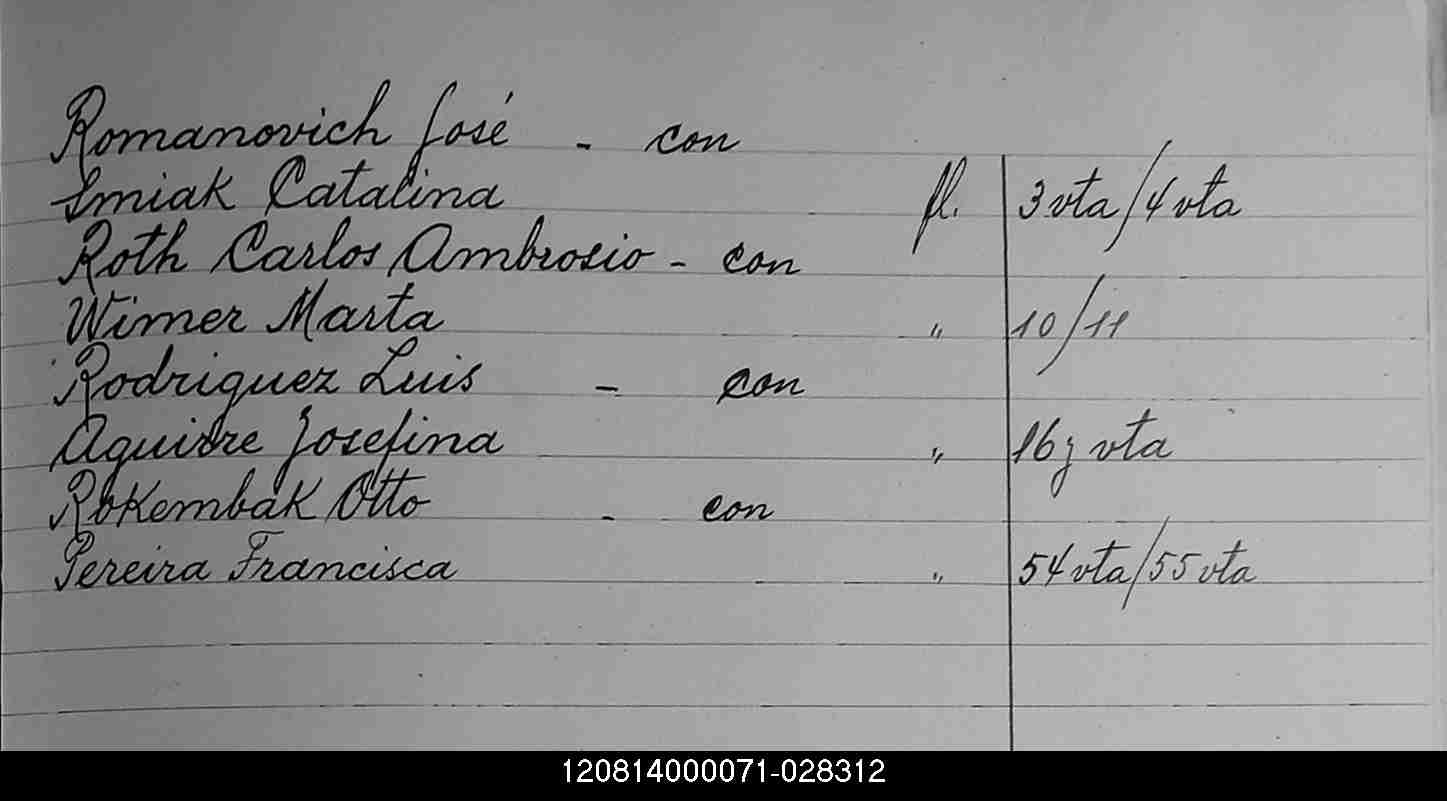 Romanovich José - con
Smiak Catalina fl. 3 vta/4 vta
Roth Carlos Ambrosio - con
Wimer Marta " 10/11
Rodriguez Luis - con
Aguirre Josefina " 16 y vta
Rokembak Otto - con
Pereira Francisca " 54 vta/55 vta
120814000071-028312